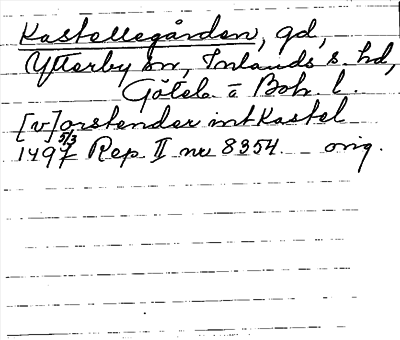 Kastellegården, gd,
Ytterby sn, Inlands s. hd,
Götebs o Boh. l.
[v]orstender int Kastel
1497 5/3 Rep. II nr 8354. orig.